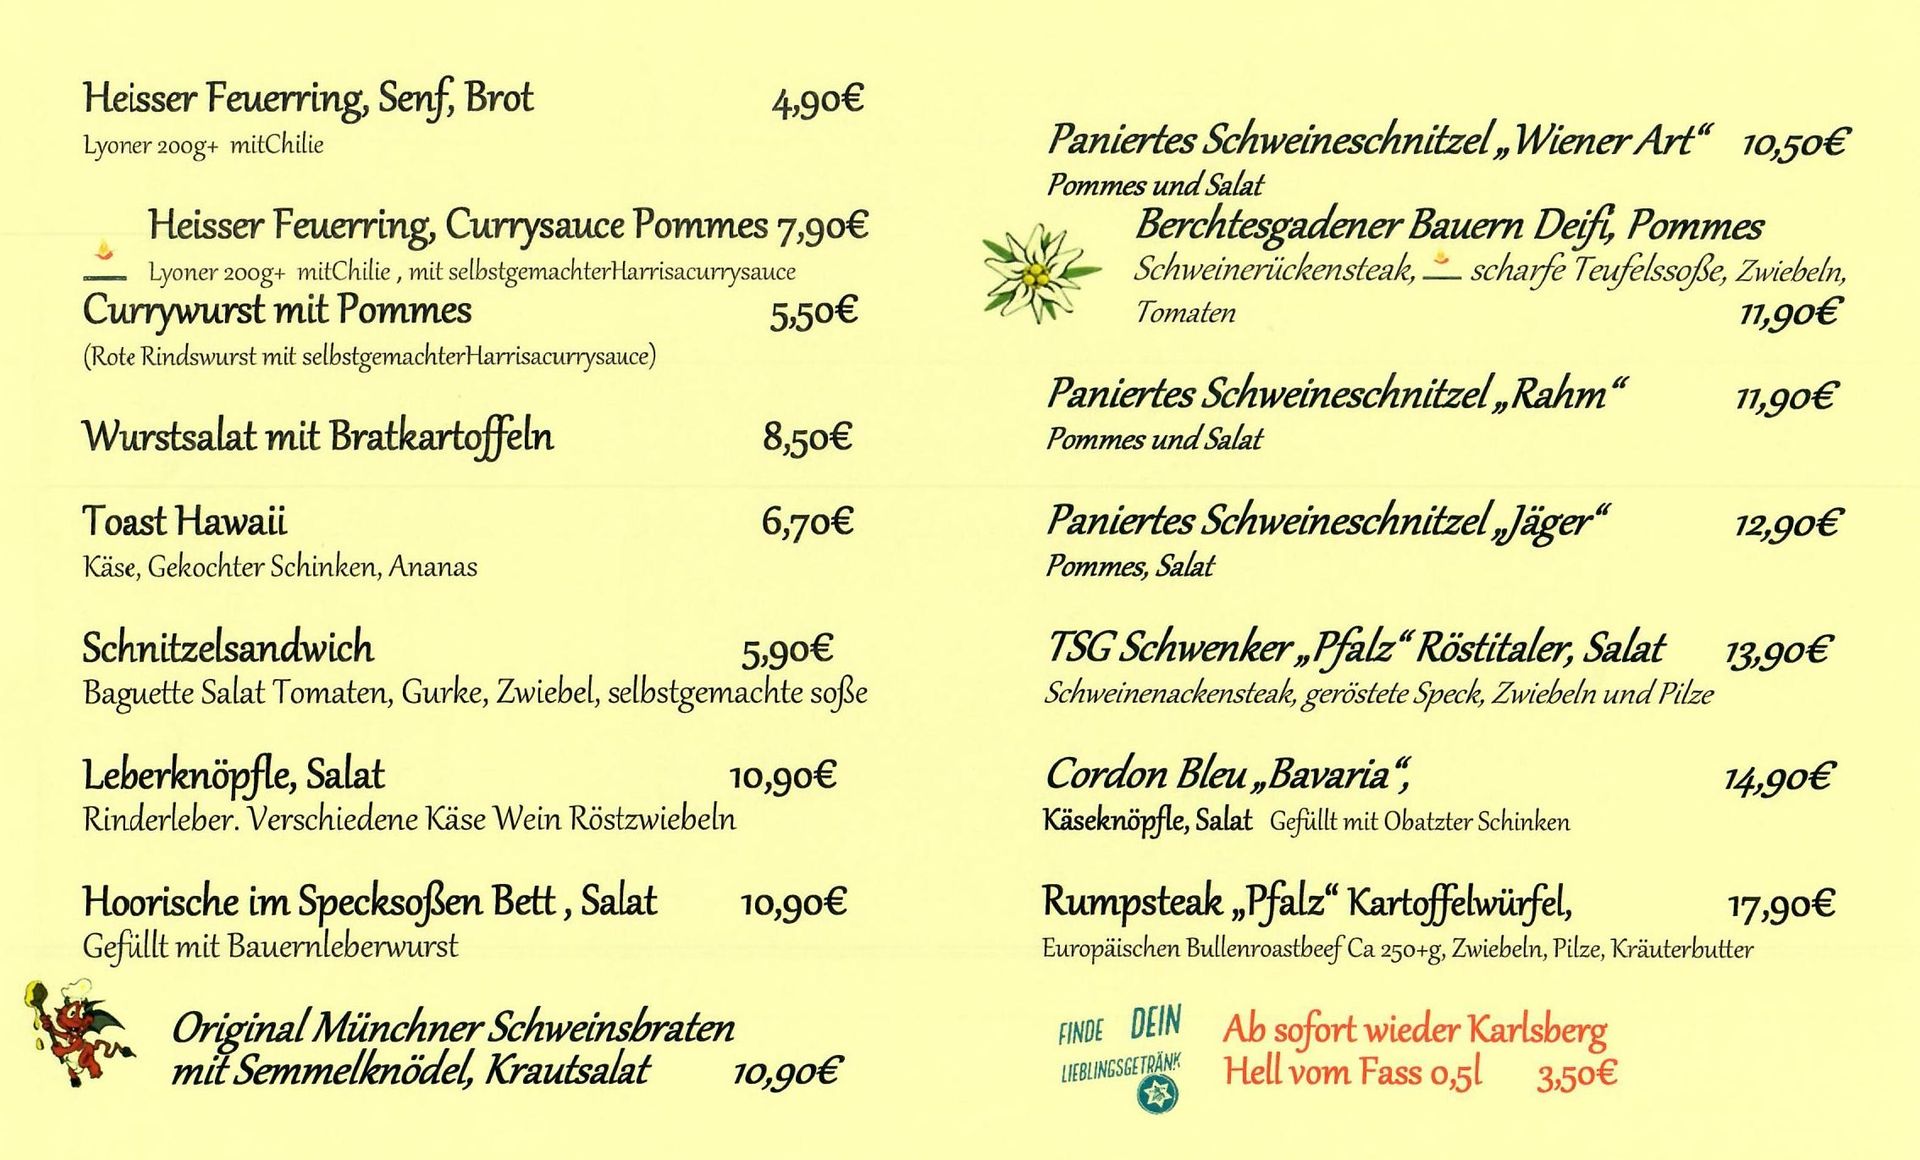 Heisser Feuerring, Senf, Brot 4,90€
Lyoner 200g+ mitChilie
Heisser Feuerring, Currysauce Pommes 7,90€
Lyoner 200g+ mitChilie , mit selbstgemachterHarrisacurrysauce
Currywurst mit Pommes 5,50€
(Rote Rindswurst mit selbstgemachterHarrisacurrysauce)
Wurstsalat mit Bratkartoffeln 8,50€
Toast Hawaii 6,70€
Käse, Gekochter Schinken, Ananas
Schnitzelsandwich 5,90€
Baguette Salat Tomaten, Gurke, Zwiebel, selbstgemachte soße
Leberknöpfle, Salat 10,90€
Rinderleber. Verschiedene Käse Wein Röstzwiebeln
Hoorische im Specksoßen Bett , Salat 10,90€
Gefüllt mit Bauernleberwurst
Original Münchner Schweinsbraten
mit Semmelknödel, Krautsalat 10,90€
Paniertes Schweineschnitzel „Wiener Art“ 10,50€
Pommes und Salat
Berchtesgadener Bauern Deifi, Pommes
Schweinerückensteak, scharfe Teufelssoße, Zwiebeln,
Tomaten 11,90€
Paniertes Schweineschnitzel „Rahm“ 11,90€
Pommes und Salat
Paniertes Schweineschnitzel „Jäger“ 12,90€
Pommes, Salat
TSG Schwenker „Pfalz“ Röstitaler, Salat 13,90€
Schweinenackensteak, geröstete Speck, Zwiebeln und Pilze
Cordon Bleu „Bavaria“, 14,90€
Käseknöpfle, Salat Gefüllt mit Obatzter Schinken
Rumpsteak „Pfalz“ Kartoffelwürfel, 17,90€
Europäischen Bullenroastbeef Ca 250+g, Zwiebeln, Pilze, Kräuterbutter
FINDE DEIN
LIEBLINGSGETRÄNK
Ab sofort wieder Karlsberg
Hell vom Fass 0,5l 3,50€